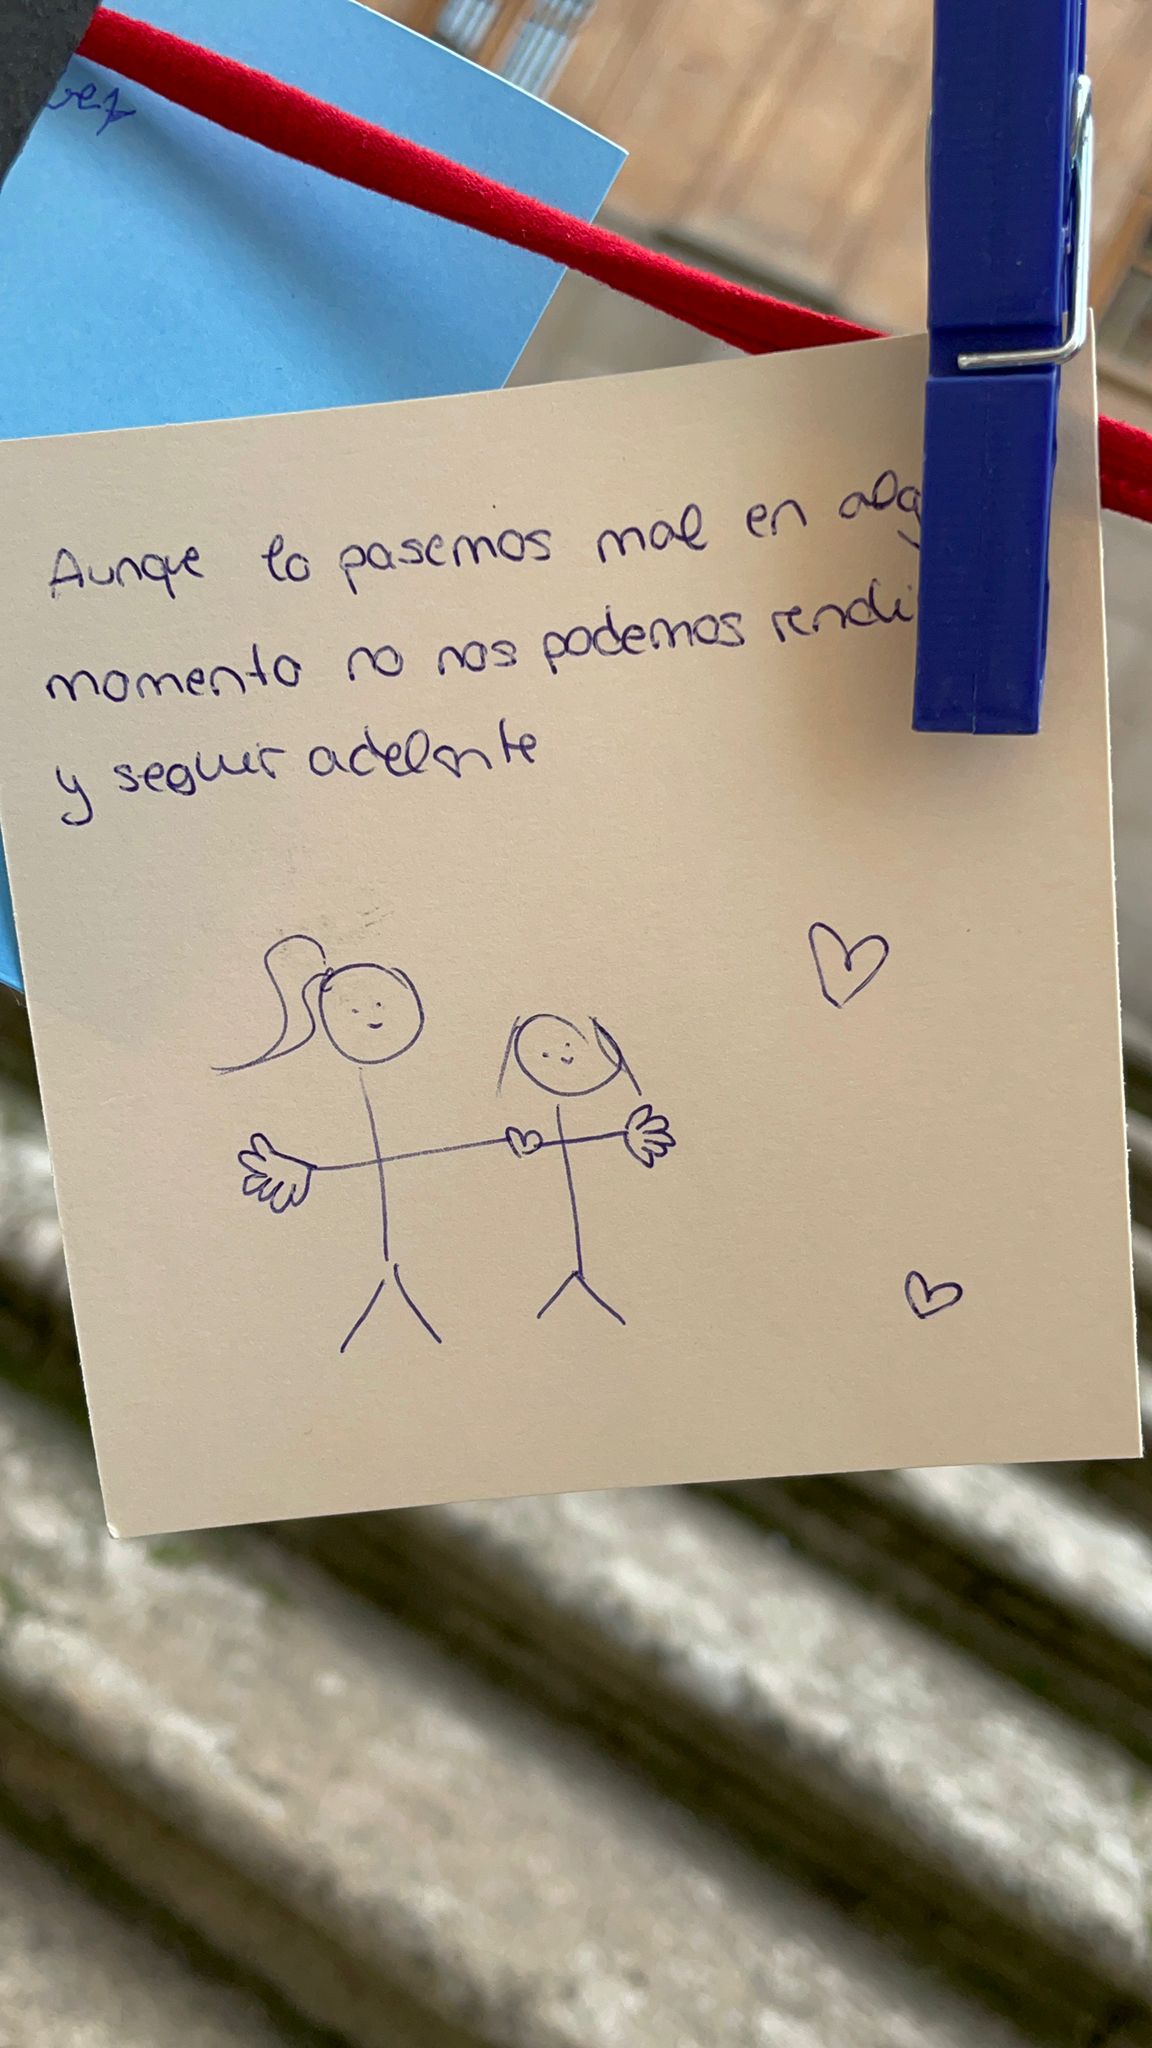 vez
Aunque lo pasemos mal en alg
momento no nos podemos rendi
y seguir adelante